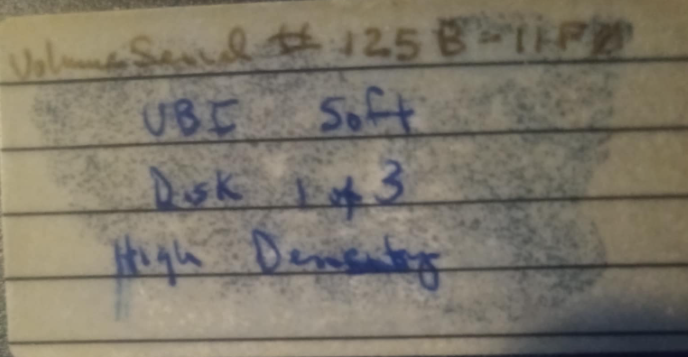 Volume Serial # 125B-11F0
UBI Soft
Disk 1 of 3
High